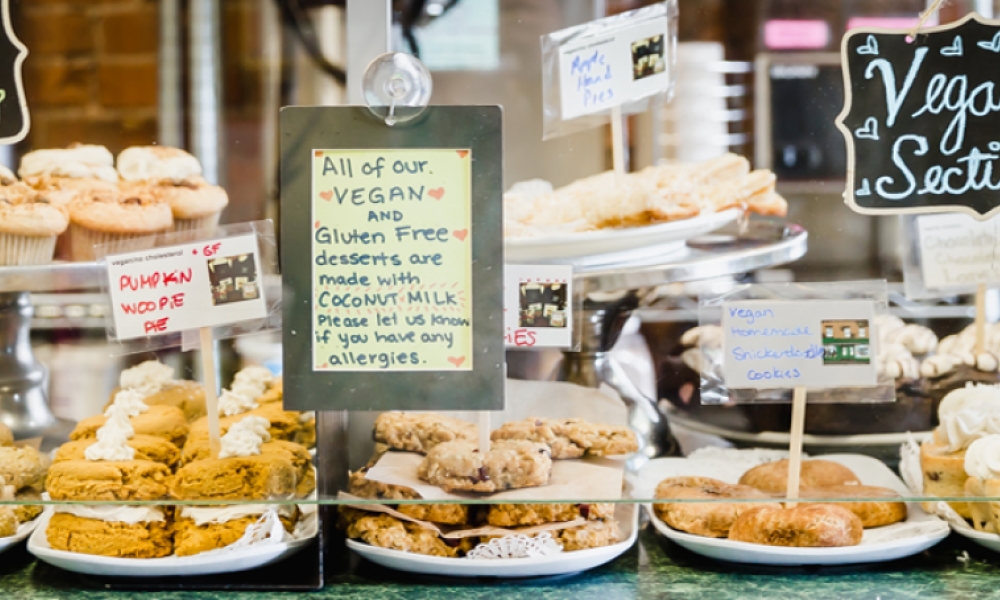 All of our.
VEGAN
AND
Gluten Free
desserts are
made with
COCONUT MILK
Please let us know
if you have any
allergies.
vegan/no cholesterol + GF
PUMPKIN
WOOPIE
PIE
vegan/no cholesterol
Apple
Hand
Pies
IES
Vegan
Homemade
Snickerdoodle
Cookies
Vega
Secti
Chocolate